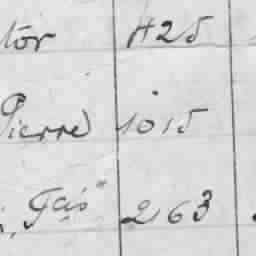 tor 425
Pierre 1015
Fçis 263